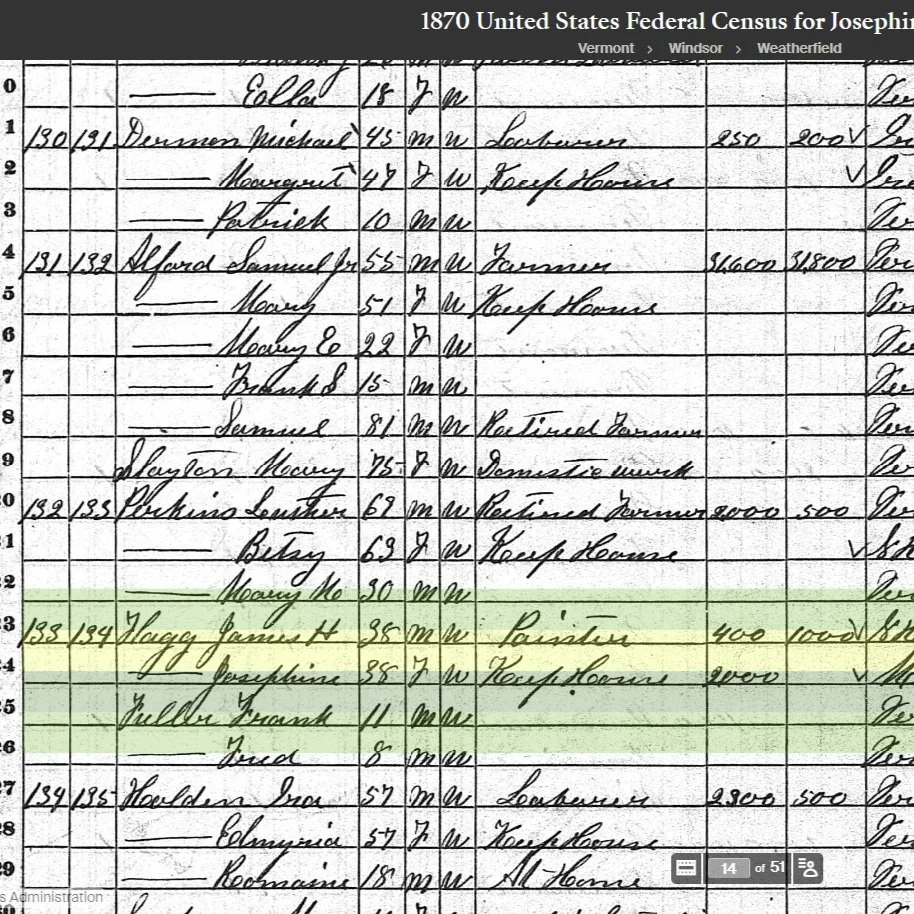 1870 United States Federal Census for Josephin
Vermont > Windsor > Weatherfield
0 — Ealla 18 F W Ver
1 130 131 Dermon Michael 45 M W Labourer 250 200 Ire
2 — Margret 47 F W Keep House Ire
3 — Patrick 10 M W Ver
4 131 132 Alford Samuel Jr 55 M W Farmer 31,600 31,800 Ver
5 — Mary 51 F W Keep House Ver
6 — Mary E 22 F W Ve
7 — Frank S 15 M W Ver
8 — Samuel 81 M W Retired Farmer Ver
9 Slayton Mary 75 F W Domestic work Ve
20 132 133 Perkins Luther 69 M W Retired Farmer 2000 500 Ver
21 — Betsy 63 F W Keep House
22 — 30 M W Ver
23 133 134 Flagg James H 38 M W Painter 400 1000
24 — Josephine 38 F W Keep House 2000
25 Fuller Frank 11 M W Ve
26 — Fred 8 M W Ve
27 134 135 Holden Ira 57 M W Labourer 2300 500 Ver
28 — Edmyria 57 F W Keep House Ver
29 — Romaine 18 M W At Home Ver
14 of 51
s Administration